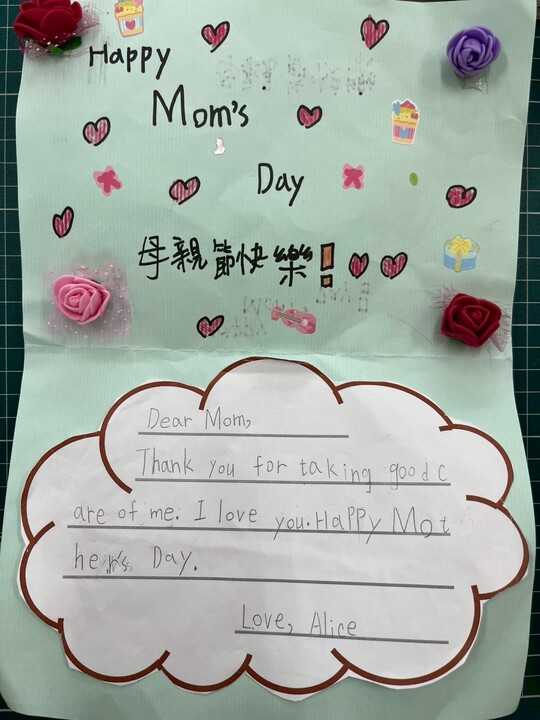 Happy
Mom's
Day
母親節快樂！
Dear Mom,
Thank you for taking good c
are of me. I love you. Happy Mot
her's Day.
Love, Alice